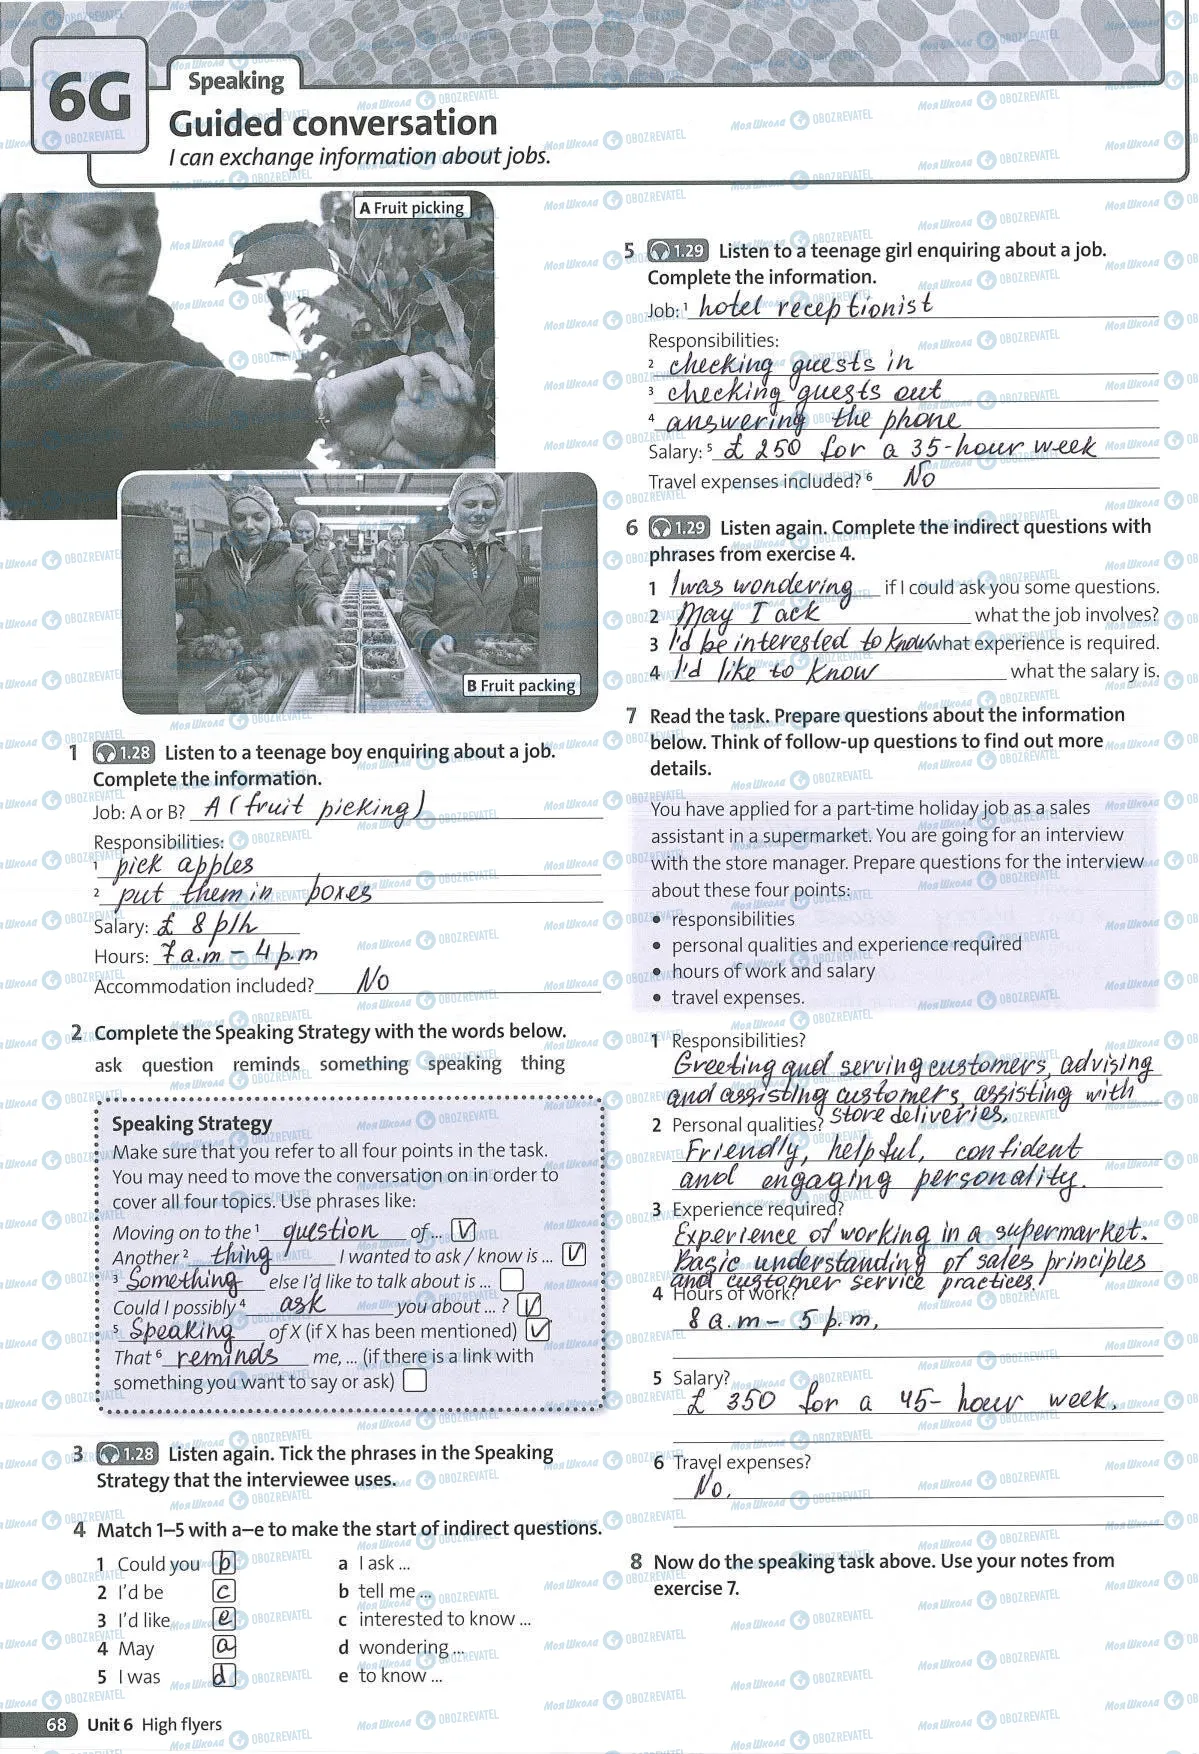 6G
Speaking
Guided conversation
I can exchange information about jobs.
A Fruit picking
B Fruit packing
1 1.28 Listen to a teenage boy enquiring about a job.
Complete the information.
Job: A or B? A (fruit picking)
Responsibilities:
1 pick apples
2 put them in boxes
Salary: £ 8 p/h
Hours: 7 a.m – 4 p.m
Accommodation included? No
2 Complete the Speaking Strategy with the words below.
ask question reminds something speaking thing
Speaking Strategy
Make sure that you refer to all four points in the task.
You may need to move the conversation on in order to
cover all four topics. Use phrases like:
Moving on to the 1 question of ... V
Another 2 thing I wanted to ask / know is ... V
3 Something else I'd like to talk about is ...
Could I possibly 4 ask you about ... ? V
5 Speaking of X (if X has been mentioned) V
That 6 reminds me, ... (if there is a link with
something you want to say or ask)
3 1.28 Listen again. Tick the phrases in the Speaking
Strategy that the interviewee uses.
4 Match 1–5 with a–e to make the start of indirect questions.
1 Could you b a I ask ...
2 I'd be c b tell me ...
3 I'd like e c interested to know ...
4 May a d wondering ...
5 I was d e to know ...
5 1.29 Listen to a teenage girl enquiring about a job.
Complete the information.
Job: 1 hotel receptionist
Responsibilities:
2 checking guests in
3 checking guests out
4 answering the phone
Salary: 5 £ 250 for a 35-hour week
Travel expenses included? 6 No
6 1.29 Listen again. Complete the indirect questions with
phrases from exercise 4.
1 I was wondering if I could ask you some questions.
2 May I ack what the job involves?
3 I'd be interested to know what experience is required.
4 I'd like to know what the salary is.
7 Read the task. Prepare questions about the information
below. Think of follow-up questions to find out more
details.
You have applied for a part-time holiday job as a sales
assistant in a supermarket. You are going for an interview
with the store manager. Prepare questions for the interview
about these four points:
• responsibilities
• personal qualities and experience required
• hours of work and salary
• travel expenses.
1 Responsibilities?
Greeting and serving customers, advising
and assisting customers, assisting with
store deliveries.
2 Personal qualities?
Friendly, helpful, confident
and engaging personality.
3 Experience required?
Experience of working in a supermarket.
Basic understanding of sales principles
and customer service practices.
4 Hours of work?
8 a.m – 5 p.m.
5 Salary?
£ 350 for a 45- hour week.
6 Travel expenses?
No.
8 Now do the speaking task above. Use your notes from
exercise 7.
68 Unit 6 High flyers
Моя Школа OBOZREVATEL